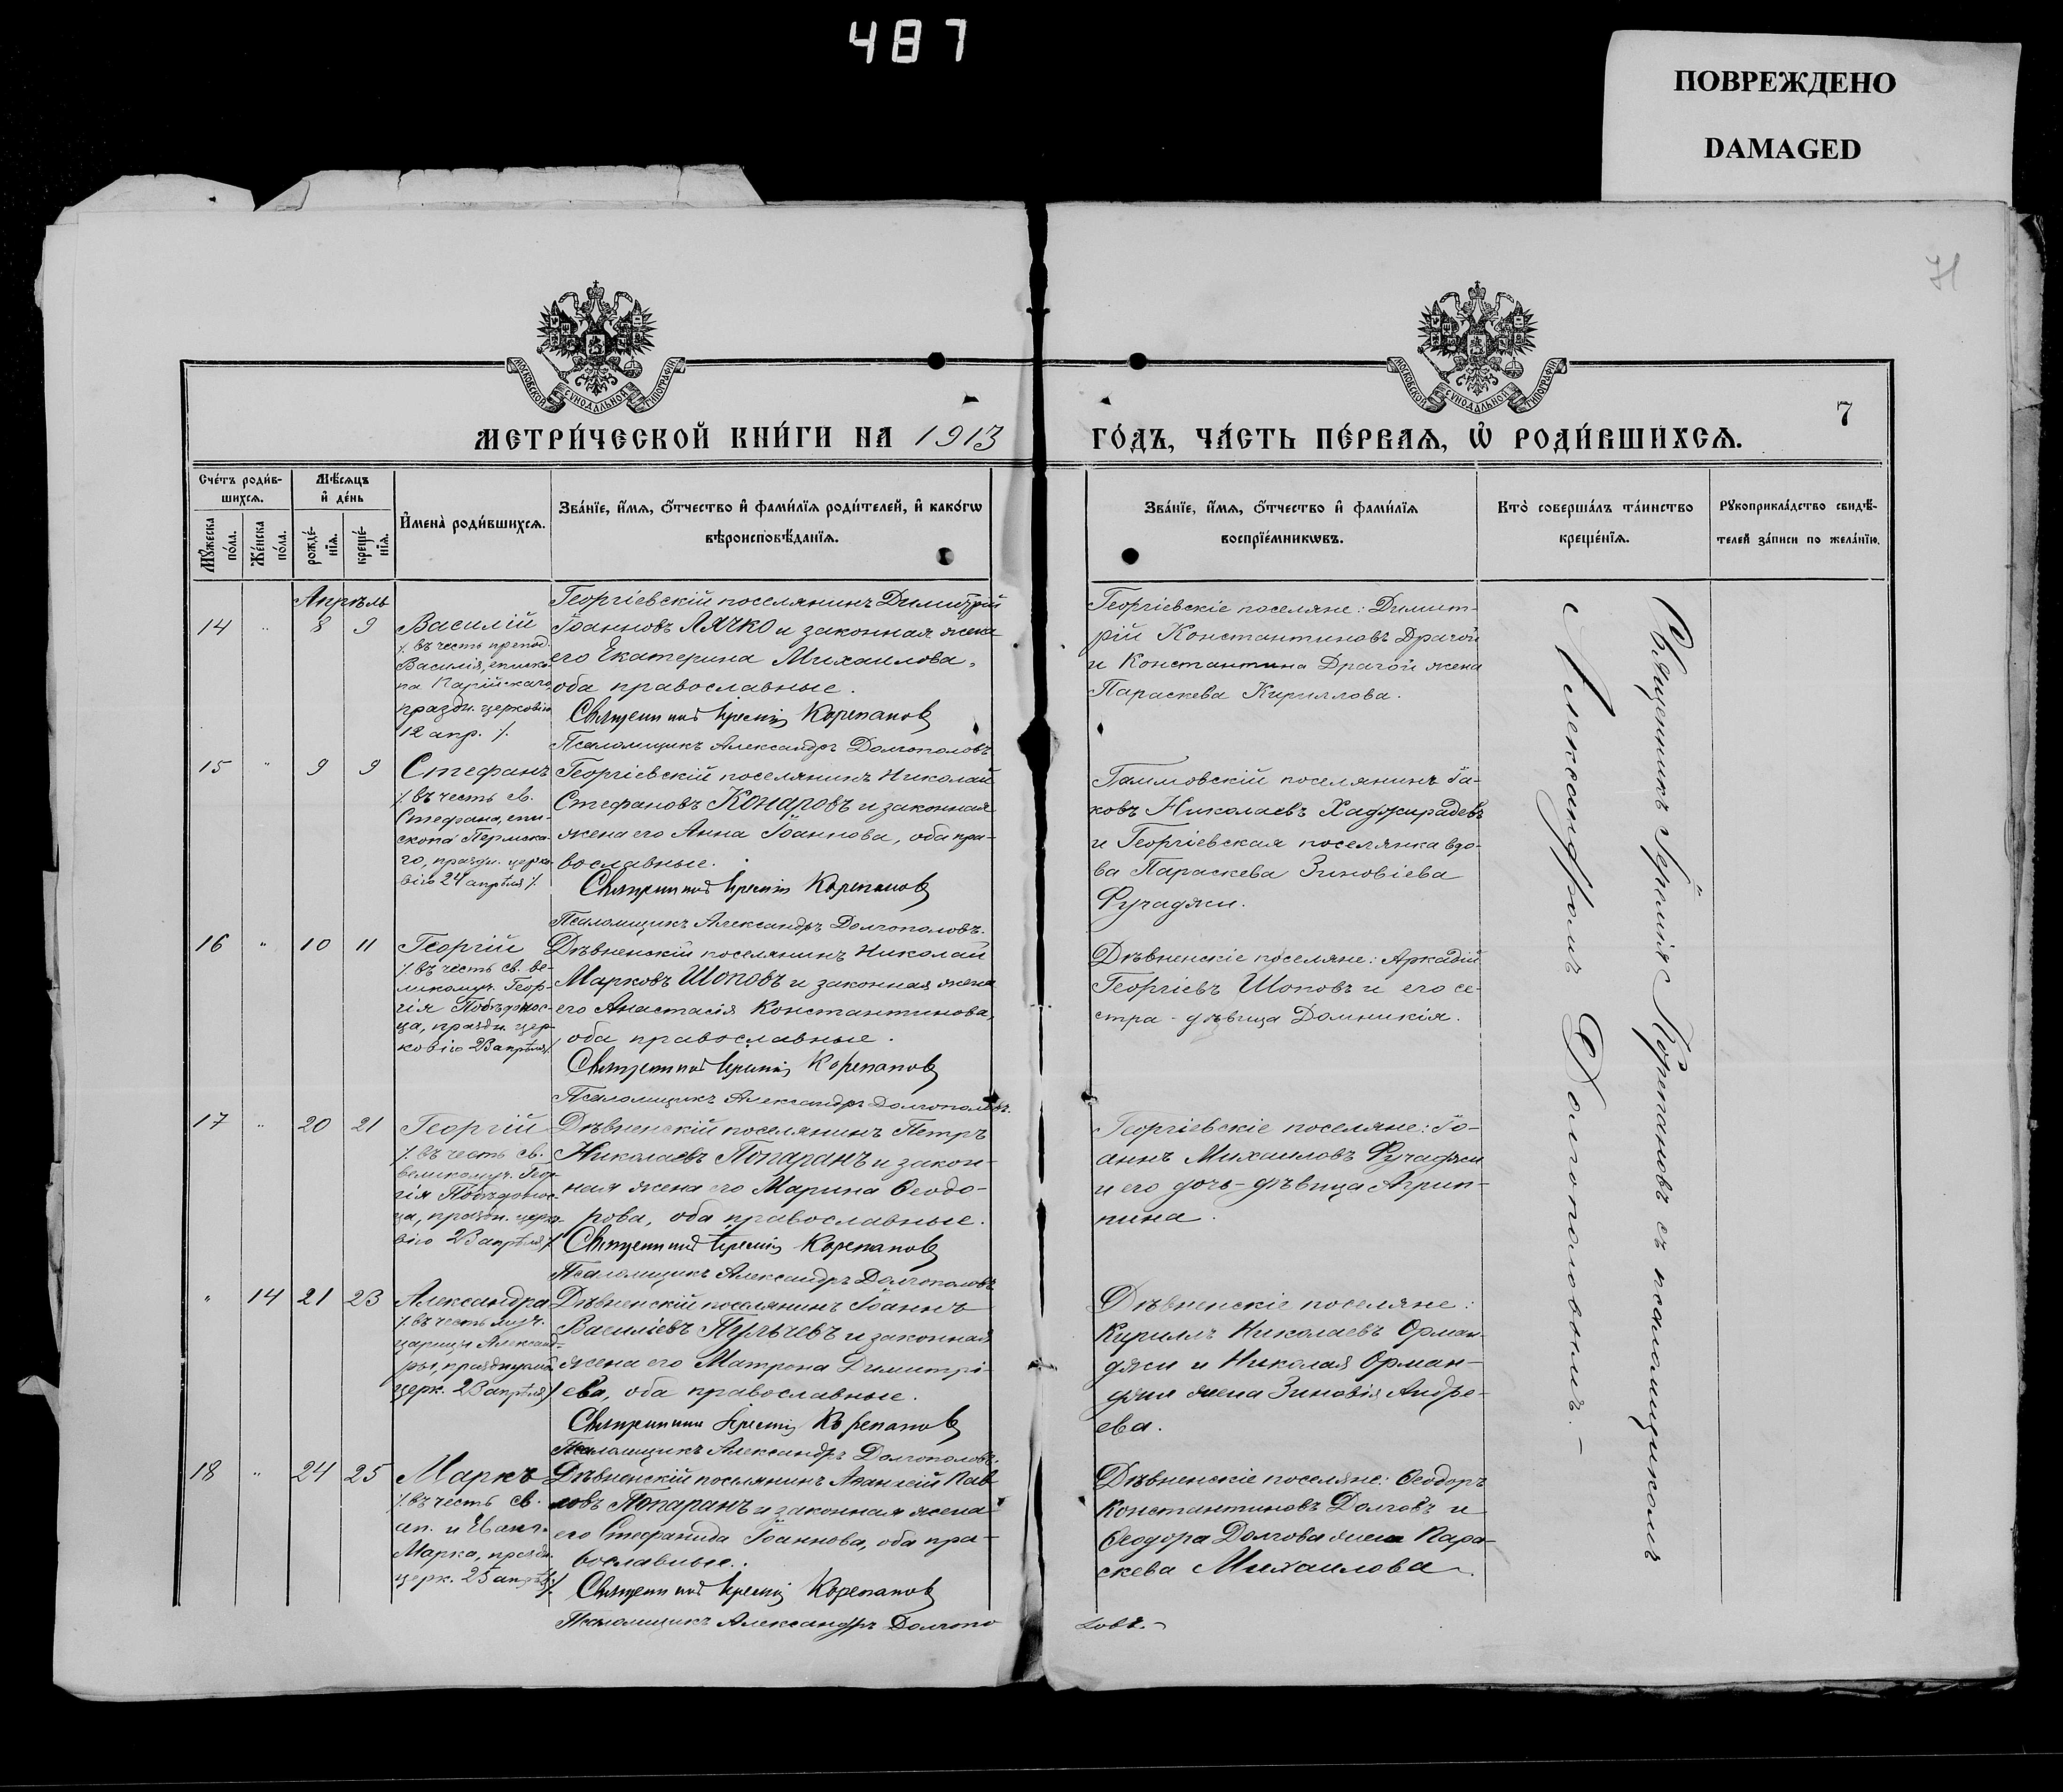 487
ПОВРЕЖДЕНО
DAMAGED
71
МОСКОВСКОЙ СУНОДАЛЬНОЙ ТИПОГРАФІИ
МОСКОВСКОЙ СУНОДАЛЬНОЙ ТИПОГРАФІИ
7
МЕТРИ́ЧЕСКОЙ КНИ́ГИ НА 1913
ГО́ДЪ, ЧА́СТЬ ПЕ́РВАѦ, Ѡ҆ РОДИ́ВШИХСѦ.
Сче́тъ роди́в-
шихсѧ.
Мꙋ́жеска
по́ла.
Же́нска
по́ла.
Мѣ́сѧцъ
и҆ де́нь
рожде́-
нїѧ.
креще́-
нїѧ.
И҆мена̀ роди́вшихсѧ.
Зва́нїе, и҆́мѧ, ѻ҆́тчество и҆ фами́лїѧ роди́телей, и҆ како́гѡ
вѣроисповѣ́данїѧ.
Зва́нїе, и҆́мѧ, ѻ҆́тчество и҆ фами́лїѧ
воспрїе́мникѡвъ.
Кто̀ соверша́лъ та́инство
креще́нїѧ.
Рꙋкоприкла́дство свидѣ́-
телей за́писи по жела́нїю.
Апрѣль
14 " 8 9
Василій
/. въ честь препод.
Василія, еписко-
па Парійскаго,
праздн. церковію
12 апр. /.
Георгіевскій поселянинъ Димитрій
Іоанновъ Лячко и законная жена
его Екатерина Михаилова,
оба православные.
Священникъ Корепановъ
Псаломщикъ Александръ Долгополовъ
Георгіевскіе поселяне: Димит-
рій Константиновъ Драгой
и Константина Драгой жена
Параскева Кириллова.
15 " 9 9
Стефанъ
/. въ честь св.
Стефана, епи-
скопа Пермска-
го, праздн. церко-
вію 24 апрѣля /.
Георгіевскій поселянинъ Николай
Стефановъ Конаровъ и законная
жена его Анна Іоаннова, оба пра-
вославные.
Священникъ Корепановъ
Псаломщикъ Александръ Долгополовъ.
поселянинъ Іа-
ковъ Николаевъ Хаджирадевъ
и Георгіевская поселянка вдо-
ва Параскева Зиновіева
Фучаджи.
16 " 10 11
Георгій
/. въ честь св. ве-
ликомуч. Геор-
гія Побѣдонос-
ца, праздн. цер-
ковію 23 апрѣля /.
Дѣвненскій поселянинъ Николай
Марковъ Шоповъ и законная жена
его Анастасія Константинова,
оба православные.
Священникъ Корепановъ
Псаломщикъ Александръ Долгополовъ.
Дѣвненскіе поселяне: Аркадій
Георгіевъ Шоповъ и его се-
стра - дѣвица Домникія.
17 " 20 21
Георгій
/. въ честь св.
великомуч. Геор-
гія Побѣдонос-
ца, праздн. церко-
вію 23 апрѣля /.
Дѣвненскій поселянинъ Петръ
Николаевъ Попаранъ и закон-
ная жена его Марина Ѳеодо-
рова, оба православные.
Священникъ Корепановъ
Псаломщикъ Александръ Долгополовъ
Георгіевскіе поселяне: Іо-
аннъ Михаиловъ Фучаджи
и его дочь-дѣвица Агрип-
пина.
" 14 21 23
Александра
/. въ честь муч.
царицы Александ-
ры, празднуемой
церк. 23 апрѣля /.
Дѣвненскій поселянинъ Іоаннъ
Василіевъ Пульчевъ и законная
жена его Матрона Димитрі-
ева, оба православные.
Священникъ Корепановъ
Псаломщикъ Александръ Долгополовъ.
Дѣвненскіе поселяне:
Кириллъ Николаевъ Орман-
джи и Николая Орман-
джи жена Зиновія Андре-
ева.
18 " 24 25
Маркъ
/. въ честь св.
ап. и Еванг.
Марка, праздн.
церк. 25 апрѣля /.
Дѣвненскій поселянинъ Аѳанасій Пав-
ловъ Попаранъ и законная жена
его Стефанида Іоаннова, оба пра-
вославные.
Священникъ Корепановъ
Псаломщикъ Александръ Долгопо
ловъ.-
Дѣвненскіе поселяне: Ѳеодоръ
Константиновъ Долговъ и
Ѳеодора Долгова жена Пара-
скева Михаилова.
Священникъ Корепановъ съ псаломщикомъ
Александромъ Долгополовымъ. -